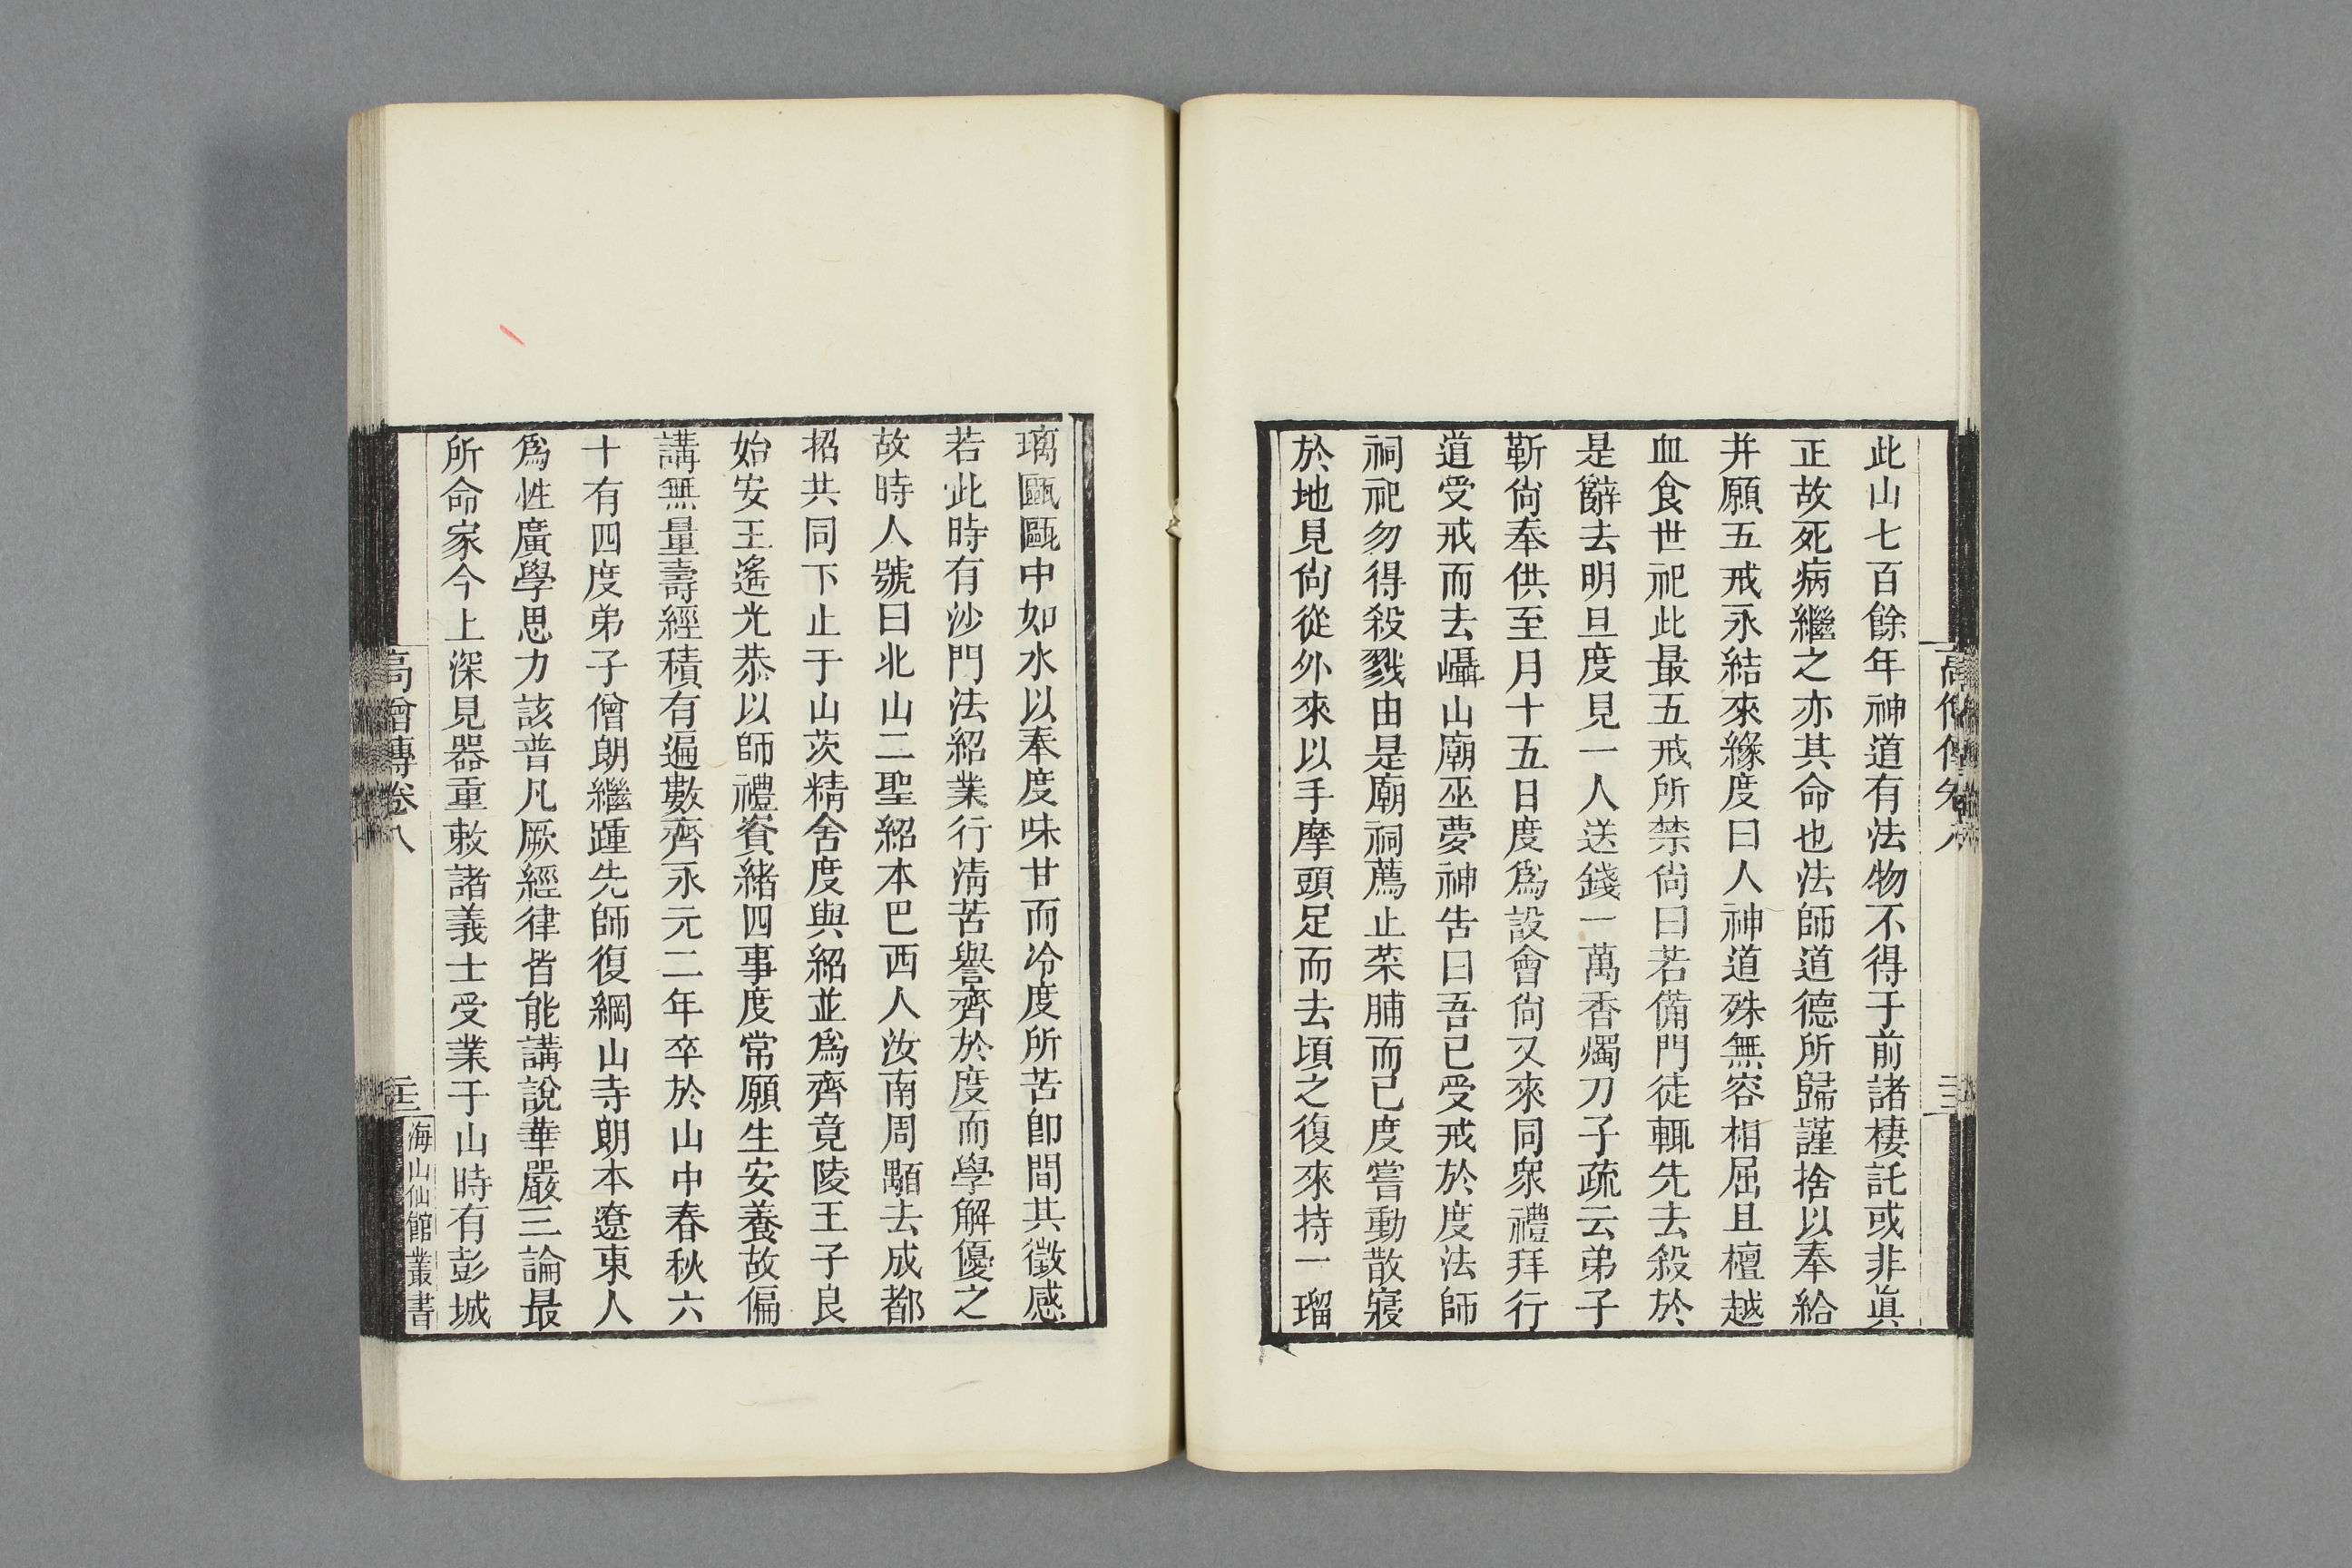 此山七百餘年神道有法物不得于前諸棲託或非眞
正故死病繼之亦其命也法師道德所歸謹捨以奉給
并願五戒永結來緣度曰人神道殊無容相屈且檀越
血食世祀此最五戒所禁尙曰若備門徒輒先去殺於
是辭去明旦度見一人送錢一萬香燭刀子疏云弟子
靳尙奉供至月十五日度爲設會尙又來同衆禮拜行
道受戒而去㠜山廟巫夢神告曰吾已受戒於度法師
祠祀勿得殺戮由是廟祠薦止菜脯而已度嘗動散寢
於地見尙從外來以手摩頭足而去頃之復來持一瑠
璃甌甌中如水以奉度味甘而冷度所苦卽間其徵感
若此時有沙門法紹業行淸苦譽齊於度而學解優之
故時人號曰北山二聖紹本巴西人汝南周顒去成都
招共同下止于山茨精舍度與紹並爲齊竟陵王子良
始安王遙光恭以師禮資緖四事度常願生安養故偏
講無量壽經積有遍數齊永元二年卒於山中春秋六
十有四度弟子僧朗繼踵先師復綱山寺朗本遼東人
爲性廣學思力該普凡厥經律皆能講說華嚴三論最
所命家今上深見器重敕諸義士受業于山時有彭城
高僧傳卷八
海山仙館叢書